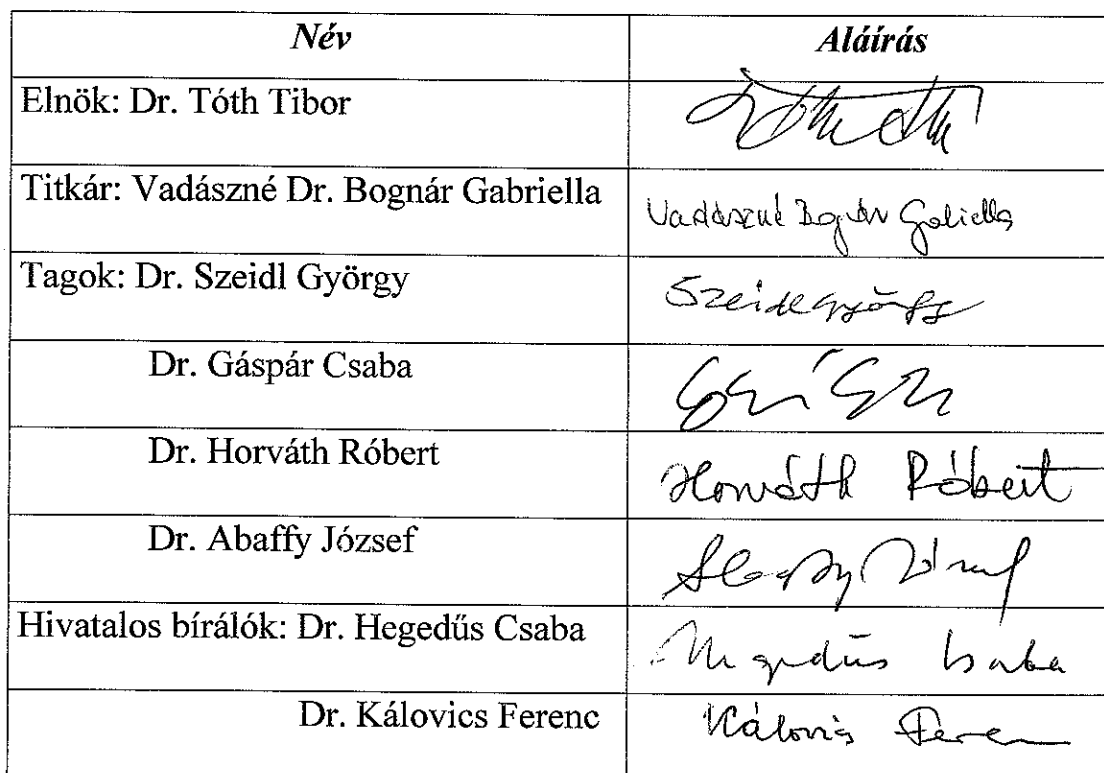 Név Aláírás
Elnök: Dr. Tóth Tibor
Titkár: Vadászné Dr. Bognár Gabriella Vadászné Bognár Gabriella
Tagok: Dr. Szeidl György Szeidl György
Dr. Gáspár Csaba
Dr. Horváth Róbert Horváth Róbert
Dr. Abaffy József Abaffy József
Hivatalos bírálók: Dr. Hegedűs Csaba Hegedűs Csaba
Dr. Kálovics Ferenc Kálovics Ferenc